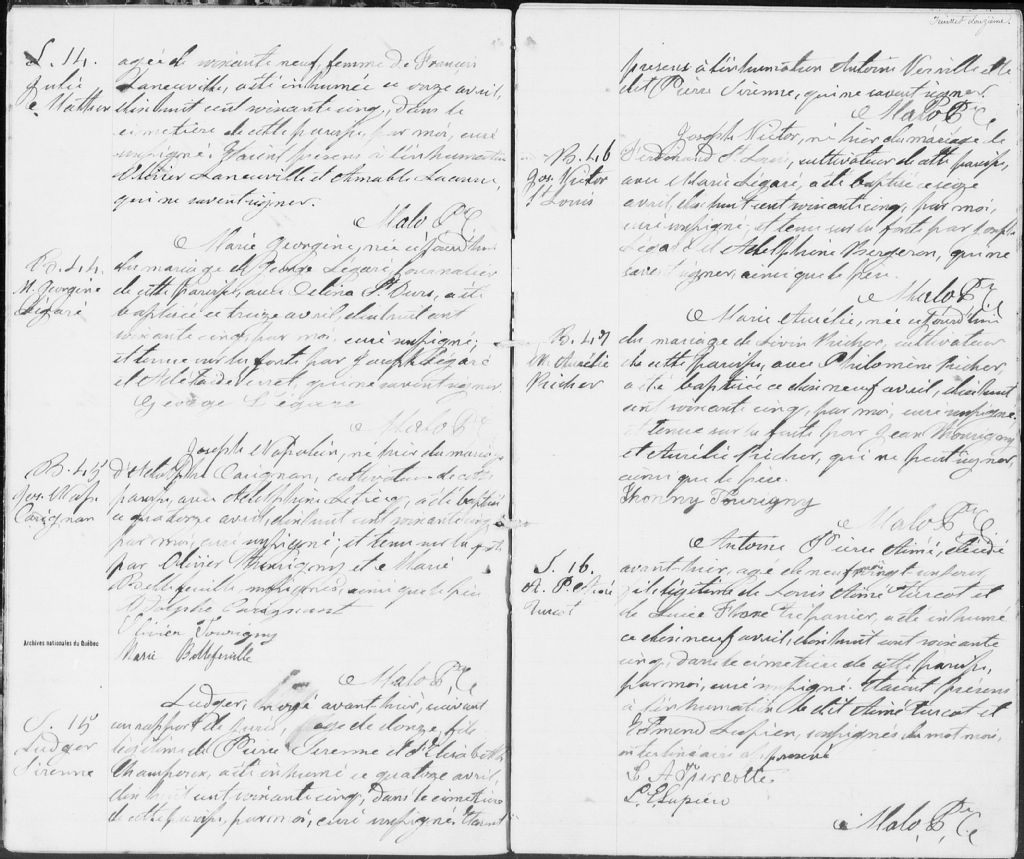 S. 14.
Julie
Mathieu
agée de soixante neuf, femme de François
Laneuville, a été inhumée ce onze avril,
dixhuit cent soixante cinq, dans le
cimetière de cette paroisse, par moi, curé
soussigné. Etaient présens à l'inhumation
Olivier Laneuville et Amable
qui ne savent signer.
Malo Ptre C
B. 44.
M. Georgine
Légaré
Marie Georgine, née aujourd'hui
du mariage de George Légaré journalier
de cette paroisse, avec Délina St Ours, a été
baptisée ce treize avril, dixhuit cent
soixante cinq, par moi, curé soussigné;
et tenue sur les fonts par Joseph Légaré
et qui ne savent signer
George Légaré
Malo Ptre C
B. 45
Jos. Nap.
Carignan
Joseph Napoléon, né hier du mariage
d'Adolphe Carignan, cultivateur de cette
paroisse, avec Adelphine a été baptisé
ce quatorze avril, dixhuit cent soixante cinq
par moi, curé soussigné; et tenu sur les fonts
par Olivier Tourigny et Marie
Bellefeuille soussignés, ainsi que le père
Adolphe Carignant
Olivier Tourigny
Marie Bellefeuille
Malo Ptre C
Archives nationales du Québec
S. 15
Ludger
Sirenne
Ludger, avant hier, suivant
un rapport de agé de fils
légitime de Pierre Sirenne et d'Elisabeth
Champoux, a été inhumé ce quatorze avril,
dixhuit cent soixante cinq, dans le cimetière
de cette paroisse, par moi, curé soussigné. Etaient
Feuillet douzième.
présens à l'inhumation Antoine Verville et le
dit Pierre Sirenne, qui ne savent signer.
Malo Ptre C
B. 46
Jos. Victor
St Louis
Joseph Victor, né hier du mariage de
Ferdinand St Louis, cultivateur de cette paroisse,
avec Marie Légaré, a été baptisé ce seize
avril, dixhuit cent soixante cinq, par moi,
curé soussigné; et tenu sur les fonts par Joseph
Légaré et Adelphine Bergeron, qui ne
savent signer, ainsi que le père.
Malo Ptre C
B. 47
M. Aurélie
Richer
Marie Aurélie, née aujourd'hui
du mariage de Livin Richer, cultivateur
de cette paroisse, avec Philomène Richer,
a été baptisée ce dixneuf avril, dixhuit
cent soixante cinq, par moi, curé soussigné
et tenue sur les fonts par Jean Tourigny
et Aurélie Richer, qui ne peut signer,
ainsi que le père.
Thommy Tourigny
Malo Ptre C
S. 16.
A. P. Aimé
Turcot
Antoine Pierre Aimé, décédé
avant-hier, agé de neuf mois vingt un jours,
fils légitime de Louis Aimé Turcot et
de Luce Flore Trépanier, a été inhumé
ce dixneuf avril, dixhuit cent soixante
cinq, dans le cimetière de cette paroisse,
par moi, curé soussigné. Etaient présens
à l'inhumation le dit Aimé Turcot et
Lupien, soussignés. Le mot mois,
interlinéaire approuvé
L. A. Turcotte.
Lupien
Malo, Ptre, C